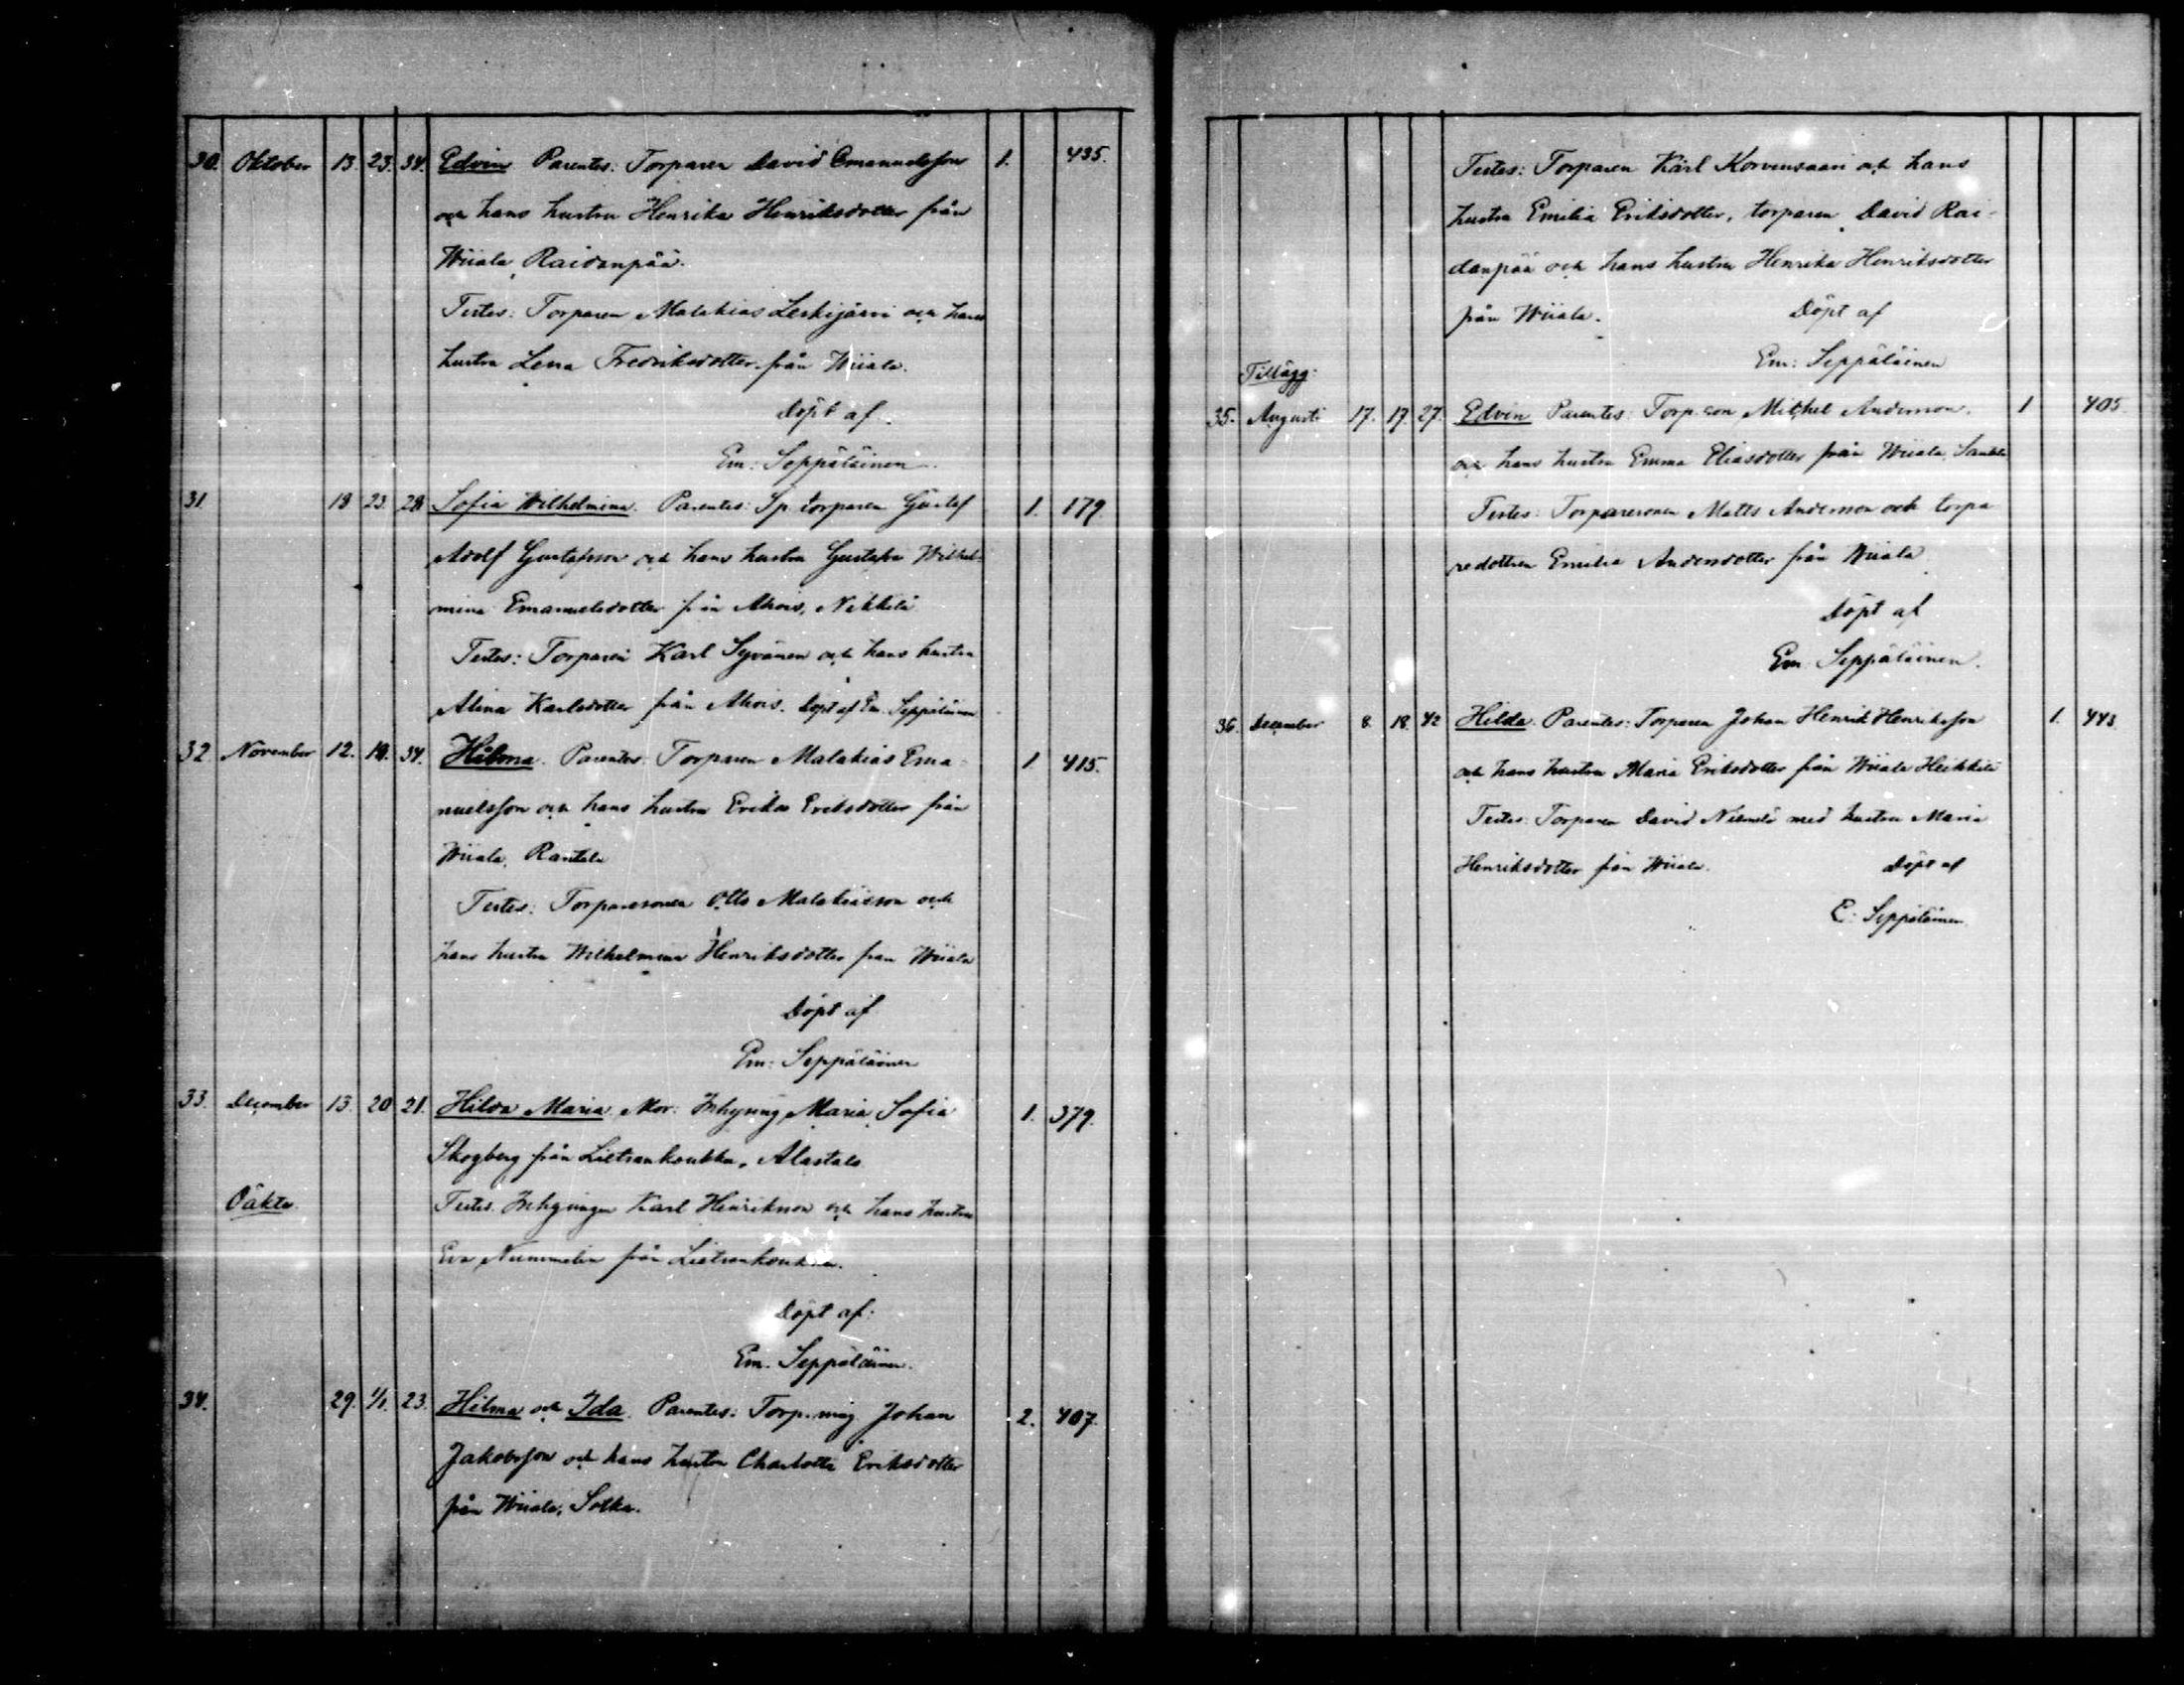 30. Oktober 13. 23. 34. Edvin Parentes: Torparen David Emanuelsson 1. 435.
och hans hustru Henrika Henriksdotter från
Wiiala, Raidanpää.
Testes: Torparen Malakias Leskijärvi och hans
hustru Lena Fredriksdotter från Wiiala.
Döpt af
Em: Seppäläinen
31. 18 23. 28 Sofia Wilhelmina. Parentes: Sp. torparen Gustaf 1. 179.
Adolf Gustafsson och hans hustru Gustafva Wilhel-
mina Emanuelsdotter från Ahois, Nikkilä
Testes: Torparen Karl Syvänen och hans hustru
Alina Karlsdotter från Ahois. Döpt af Em. Seppäläinen
32. November 12. 19. 34. Hilma. Parentes: Torparen Malakias Ema- 1. 415.
nuelsson och hans hustru Erika Eriksdotter från
Wiiala, Rantala
Testes: Torparesonen Otto Malakiasson och
hans hustru Wilhelmina Henriksdotter från Wiiala
Döpt af
Em: Seppäläinen
33. December 13. 20 21. Hilda Maria. Mor: Inhysing Maria Sofia 1. 379.
Skogberg från Lietsankoukku, Alastalo
Oäkta. Testes. Inhysingen Karl Henriksson och hans hustru
Eva Nummelin från Lietsankoukku.
Döpt af:
Em. Seppäläinen.
34. 29. 1/1. 23. Hilma och Ida. Parentes: Torp.måg Johan 2. 407.
Jakobsson och hans hustru Charlotta Eriksdotter
från Wiiala, Sotka.
Testes: Torparen Karl Korvensaari och hans
hustru Emilia Eriksdotter, torparen David Rai-
danpää och hans hustru Henrika Henriksdotter
från Wiiala. Döpt af
Em: Seppäläinen
Tillägg:
35. Augusti 17. 17. 27. Edvin Parentes: Torp.son Michel Andersson 1 405
och hans hustru Emma Eliasdotter från Wiiala,
Testes: Torparesonen Matts Andersson och torpa
redottren Emilia Andersdotter från Wiiala
Döpt af
Em. Seppäläinen.
36. December 8. 18. 42 Hilda. Parentes: Torparen Johan Henrik Henriksson 1. 443.
och hans hustru Maria Eriksdotter från Wiiala Heikkilä
Testes: Torparen David Niemelä med hustru Maria
Henriksdotter från Wiiala. Döpt af
E: Seppäläinen